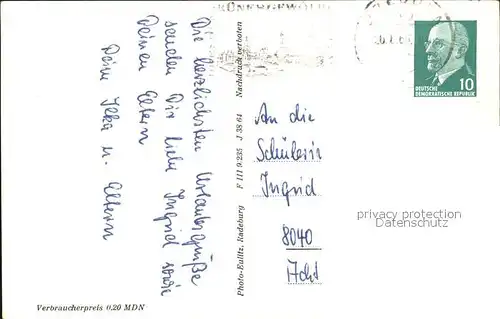 Die herzlichsten Urlaubsgrüße
senden Dir liebe Ingrid sowie
Deinen Eltern
Deine Ilka u. Eltern
Photo-Eulitz, Radeburg F 111 9.235 J 38 64 Nachdruck verboten
10
DEUTSCHE
DEMOKRATISCHE REPUBLIK
An die
Schülerin
Ingrid
8040
privacy protection
Datenschutz
Verbraucherpreis 0,20 MDN